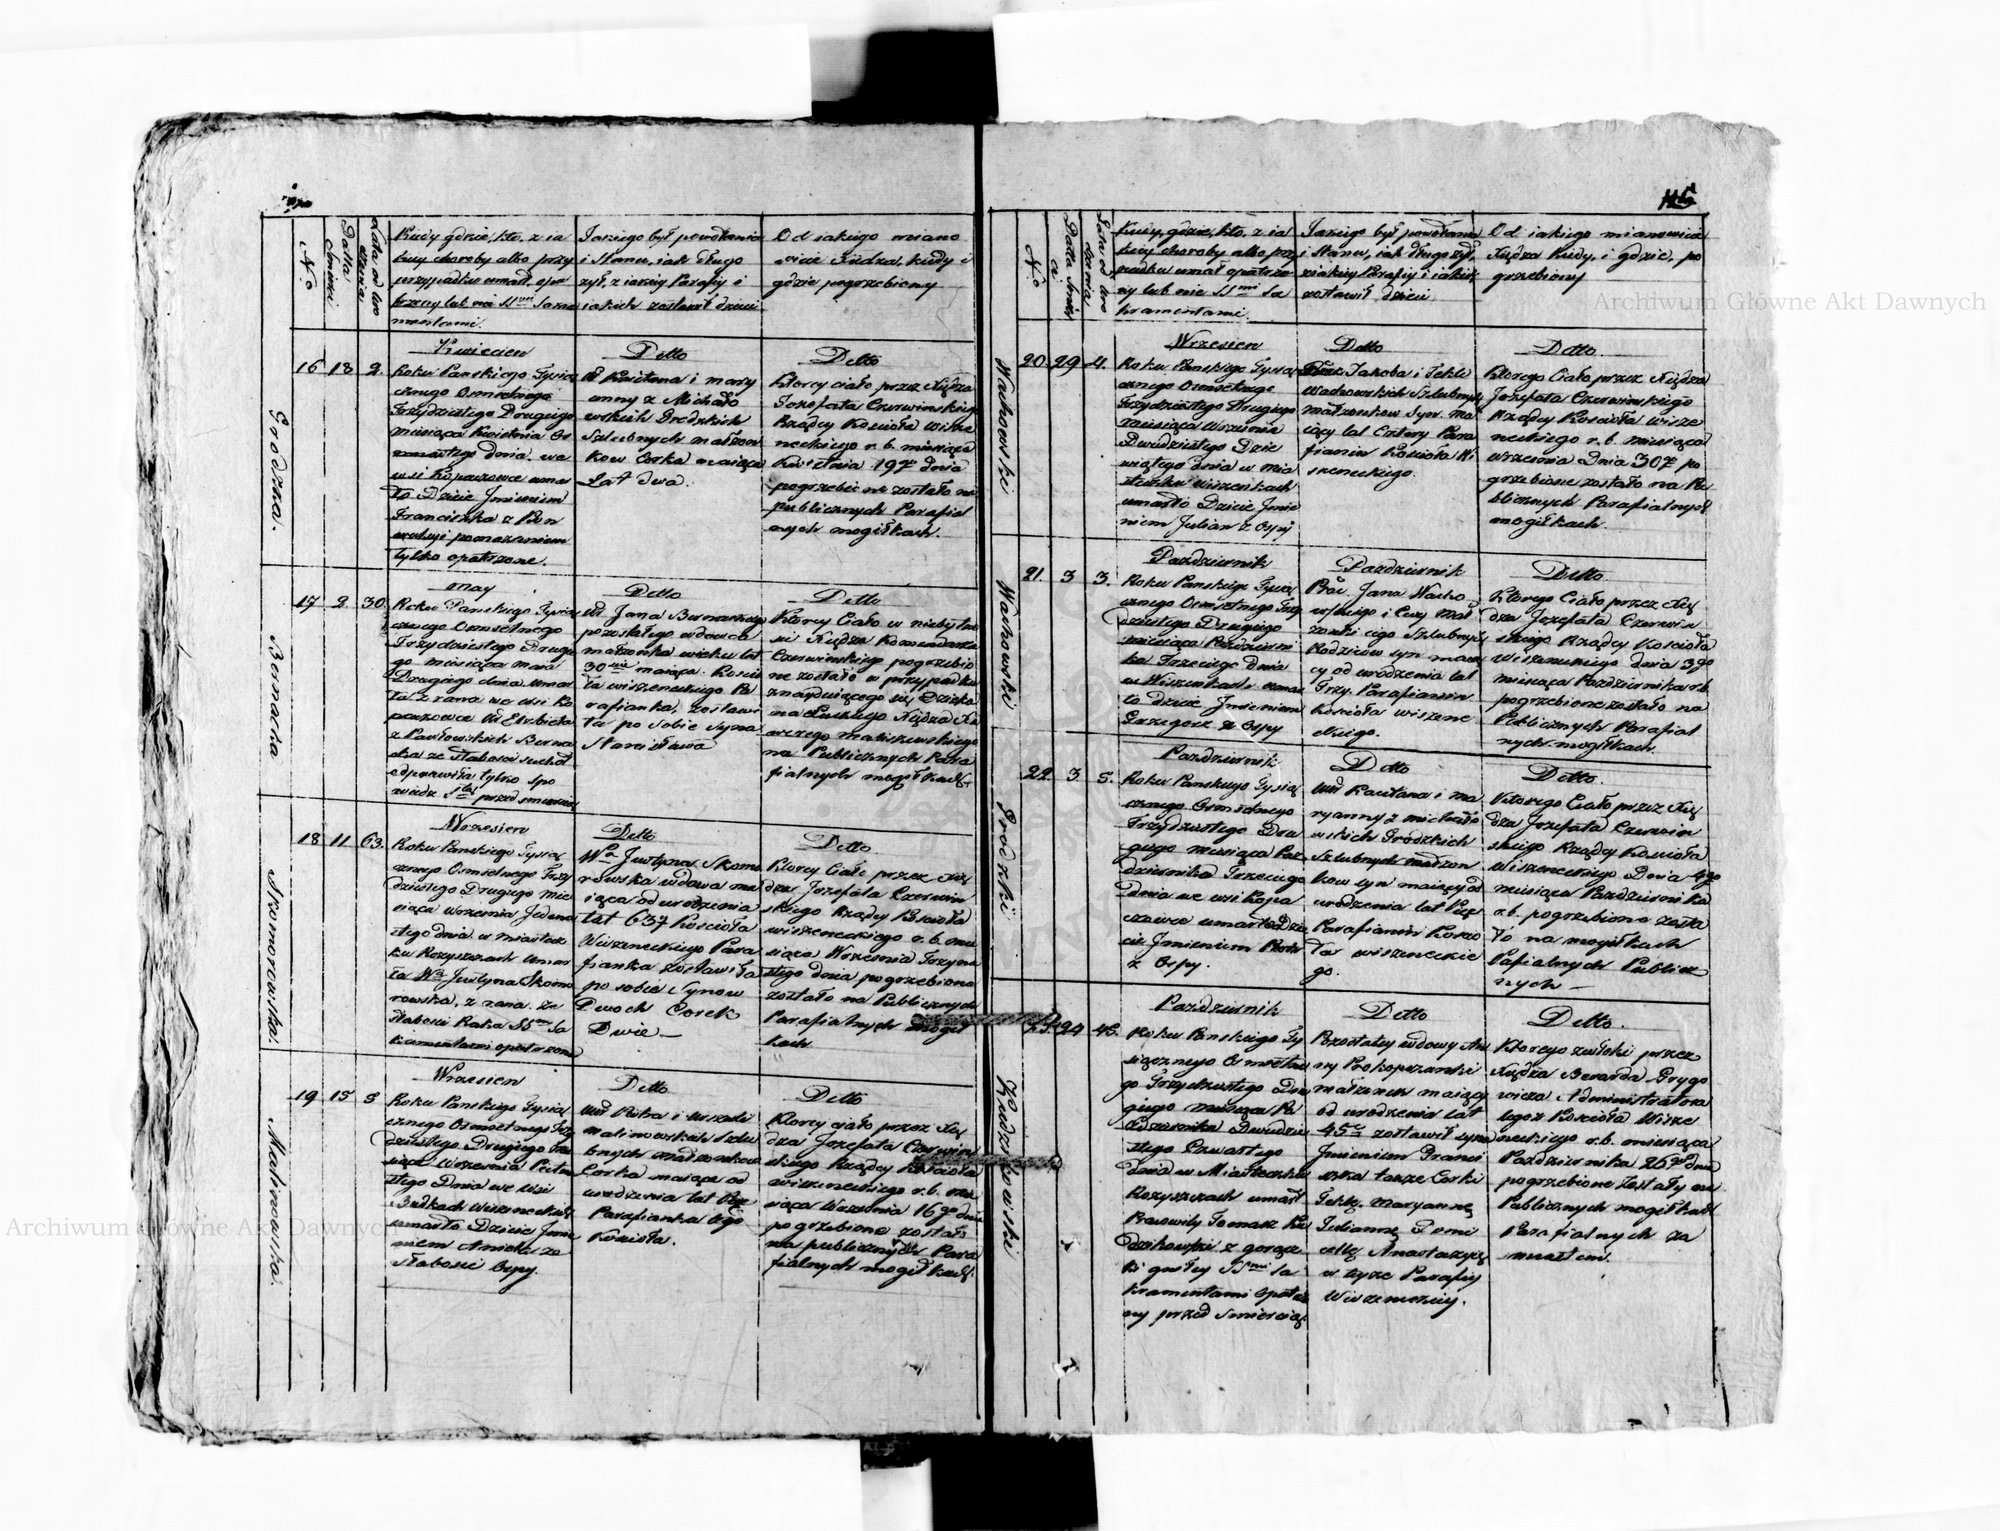 115
N.
Datta Smierci
Lata od uro
dzenia
Kiedy gdzie, kto, z ia
kiey choroby albo przy
przypadku umarł, opa
trzony lub nie SSmi Sakra
mentami.
Jakiego był powołania
i Stanu, iak długo
żył, z iakiey Parafiy i
iakich zostawił dzieci
Od iakiego miano
wicie Xiędza, kiedy i
gdzie pogrzebiony
Grodzka.
16 18 2.
Kwiecien
Roku Panskiego Tysią
cznego Osmsetnego
Trzydziestego Drugiego
miesiąca Kwietnia Os
mnastego dnia we
wsi Kopaczowce umar
ło Dziecie Jmieniem
Franciszka z Kon
wulsyi pomazaniem
tylko opatrzone.
Detto
Kaietana i mary
anny z Michało
wskich Grodzkich
Szlubnych małżon
kow Corka maiąca
Lat dwa.
Detto
Ktorey ciało przez Xiędza
Jozefata Czerwinskiego
Rządcy Kosciola Wisze
neckiego r. b. miesiąca
Kwietnia 19go dnia
pogrzebione zostało na
publicznych Parafial
nych mogiłkach.
Bernacka
17 2 30.
May
Roku Panskiego Tysią
cznego Osmsetnego
Trzydziestego Drugie
go miesiąca maia
Drugiego dnia umar
ła z rana we wsi Ko
paczowce W Elzbieta
z Pawłowskich Berna
cka ze słabosci suchot
odprawiła tylko spo
wiedz Stą przed smiercią
Detto
W. Jana Bernackiego
pozostałego wdowca
małżonka wieku lat
30 maiąca. Koscio
ła wiszeneckiego Pa
rafianka, zostawi
ła po sobie Syna
Stanisława
Detto
Ktorey Ciało w niebytno
sci Xiędza Komendarza
Czerwinskiego pogrzebio
ne zostało w przypadku
znayduiącego się Dzieka
na Łuckiego Xiędza
Maliszewskiego
na Publicznych Para
fialnych mogiłkach
Skomorowska.
18 11 63.
Wrzesien
Roku Panskiego Tysią
cznego Osmsetnego Trzy
dziestego Drugiego mie
siąca Wrzesnia Jedena
stego dnia w miastecz
ku Rozyszczach umar
ła Wa Justyna Skomo
rowska, z rana ze
słabosci Raka SSmi Sa
kramentami opatrzona
Detto
Wa Justyna Skomo
rowska wdowa ma
iąca od urodzenia
lat 63 Kosciola
Wiszeneckiego Para
fianka zostawiła
po sobie Synow
Dwoch Corek
Dwie
Detto
Ktorey Ciało przez Xię
dza Jozefata Czerwin
skiego Rządcy Kosciola
wiszeneckiego r. b. mie
siąca Wrzesnia Trzyna
stego dnia pogrzebione
zostało na Publicznych
Parafialnych mogił
kach
Malinowska.
19 15 5
Wrzesien
Roku Panskiego Tysią
cznego Osmsetnego Trzy
dziestego Drugiego mie
siąca Wrzesnia Pietna
stego Dnia we Wsi
Budkach Wiszeneckich
umarło Dziecie Jmie
niem Aniela ze
słabosci Ospy.
Detto
Piotra i Urszuli
Malinowskich Szlu
bnych małżonkow
Corka maiąca od
urodzenia lat Pięc
Parafianka tego
Kosciola.
Detto
Ktorey ciało przez Xię
dza Jozefata Czerwin
skiego Rządcy Kosciola
wiszeneckiego r. b. mie
siąca Wrzesnia 16go dnia
pogrzebione zostało
na publicznych Para
fialnych mogiłkach.
N.
Datta Smierci
Lata od uro
dzenia
Kiedy, gdzie, kto, z ia
kiey choroby albo przy
padku umarł opatrzo
ny lub nie SSmi Sa
kramentami.
Jakiego był powołania
i Stanu, iak długo żył,
z iakiey Parafiy i iakich
zostawił dzieci
Od iakiego mianowicie
Xiędza kiedy, i gdzie, po
grzebiony
Wachowski
20. 29 4.
Wrzesien
Roku Panskiego Tysią
cznego Osmsetnego
Trzydziestego Drugiego
miesiąca Wrzesnia
Dwudziestego Dzie
wiątego dnia w mia
steczku Wiszenkach
umarło Dziecie Jmie
niem Julian z Ospy
Detto
Jakoba i Tekli
Wachowskich Szlubnych
małżonkow Syn. Ma
iący lat Cztery Para
fianin Kosciola Wi
szeneckiego.
Detto.
Ktorego Ciało przez Xiędza
Jozefata Czerwinskiego
Rządcy Kosciola wisze
neckiego r. b. miesiąca
wrzesnia Dnia 30go po
grzebione zostało na Pu
blicznych Parafialnych
mogiłkach.
Wachowski
21. 3 3.
Pazdziernik
Roku Panskiego Tysią
cznego Osmsetnego Trzy
dziestego Drugiego
miesiąca Pazdzierni
ka Trzeciego dnia
w Wiszenkach umar
ło dziecie Jmieniem
Grzegorz z Ospy
Pazdziernik
Prac. Jana Wacho
wskiego i Ewy Mał
żonki iego Szlubnych
Rodzicow syn maią
cy od urodzenia lat
Trzy. Parafianin
Kosciola wiszene
ckiego.
Detto
Ktorego Ciało przez Xię
dza Jozefata Czerwin
skiego Rządcy Kosciola
Wiszeneckiego dnia 3go
miesiąca Pazdziernika r. b.
pogrzebione zostało na
Publicznych Parafial
nych mogiłkach.
Grodzki
22. 3 5.
Pazdziernik
Roku Panskiego Tysią
cznego Osmsetnego
Trzydziestego Dru
giego miesiąca Paz
dziernika Trzeciego
Dnia we wsi Kopa
czowce umarło Dzie
cie Jmieniem Piotr
z Ospy.
Detto
Kaietana i Ma
ryanny z Michało
wskich Grodzkich
Szlubnych małżon
kow syn maiący od
urodzenia lat Pięc
Parafianin Koscio
ła wiszeneckie
go.
Detto.
Ktorego Ciało przez Xię
dza Jozefata Czerwin
skiego Rządcy Kosciola
Wiszeneckiego Dnia 4go
miesiąca Pazdziernika
r. b. pogrzebione zosta
ło na mogiłkach
Pafialnych Publicz
nych
Kudzikowski
23. 24 45.
Pazdziernik
Roku Panskiego Ty
siącznego Osmsetne
go Trzydziestego Dru
giego miesiąca Pa
zdziernika Dwudzie
stego Czwartego
dnia w Miasteczku
Rozyszczach umarł
Pracowity Tomasz Ku
dzikowski z gorącz
ki gniłey SSmi Sa
kramentami opatrzo
ny przed Smiercią.
Detto
Pozostałey wdowy An
ny Prokopczanki
małżonek maiący
od urodzenia lat
45 zostawił syna
Jmieniem Franci
szka tudzież Corki
Teklę, Maryannę
Juliannę Domi
cellę Anastazyię
w teyze Parafiy
Wiszeneckiey.
Detto.
Ktorego zwłoki przez
Xiędza Berarda Grygo
wicza Administratora
tegoż Kosciola Wisze
neckiego r. b. miesiąca
Pazdziernika 26go dnia
pogrzebione zostały na
Publicznych mogiłkach
Parafialnych za
miastem.
Archiwum Główne Akt Dawnych
Archiwum Główne Akt Dawnych